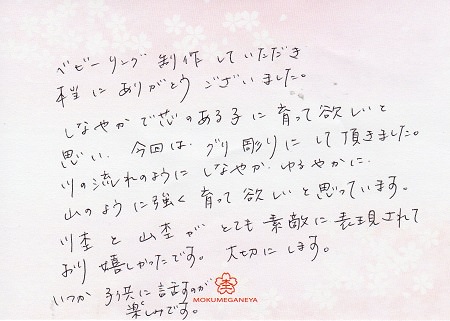 ベビーリング制作していただき
本当にありがとうございました。
しなやかで芯のある子に育って欲しいと
思い、今回は、グリ彫りにして頂きました。
川の流れのようにしなやか、ゆるやかに、
山のように強く育って欲しいと思っています。
川杢と山杢がとても素敵に表現されて
おり嬉しかったです。大切にします。
いつか子供に話すのが
楽しみです。
MOKUMEGANEYA